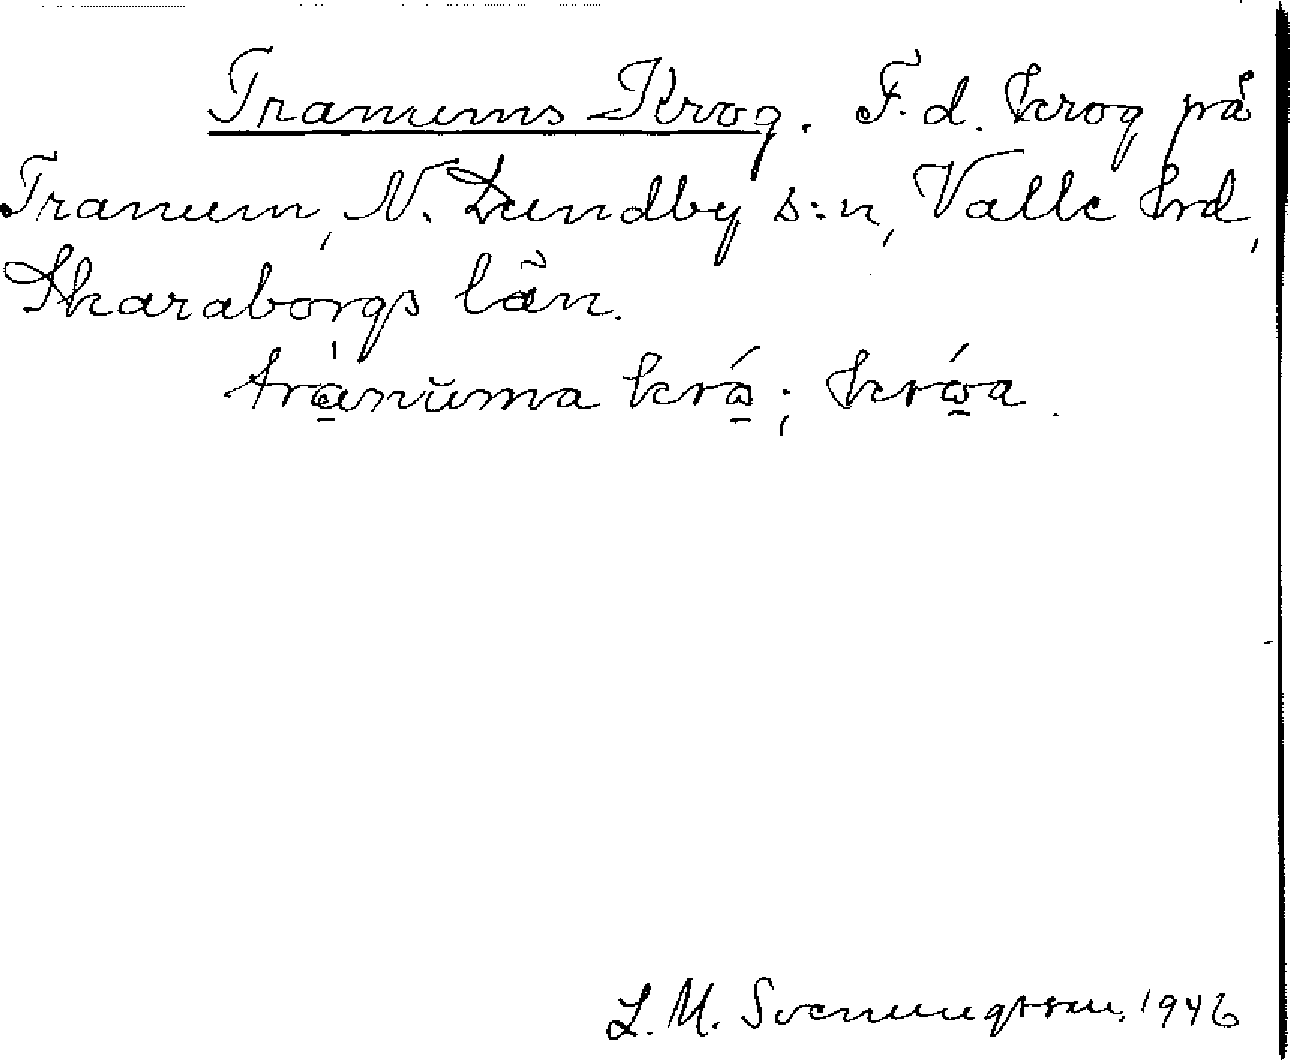 Tranums Krog. F. d. krog på
Tranum, N. Lundby s:n, Valle hrd,
Skaraborgs län.
tránŭma krǻ; krǻa.
L. M. Svenungsson, 1946